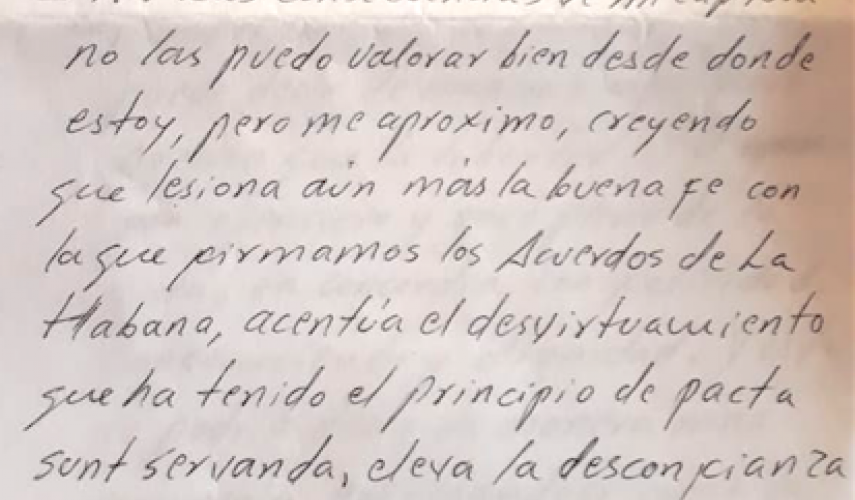 no las puedo valorar bien desde donde
estoy, pero me aproximo, creyendo
que lesiona aún más la buena fe con
la que firmamos los Acuerdos de La
Habana, acentúa el desvirtuamiento
que ha tenido el principio de pacta
sunt servanda, eleva la desconfianza